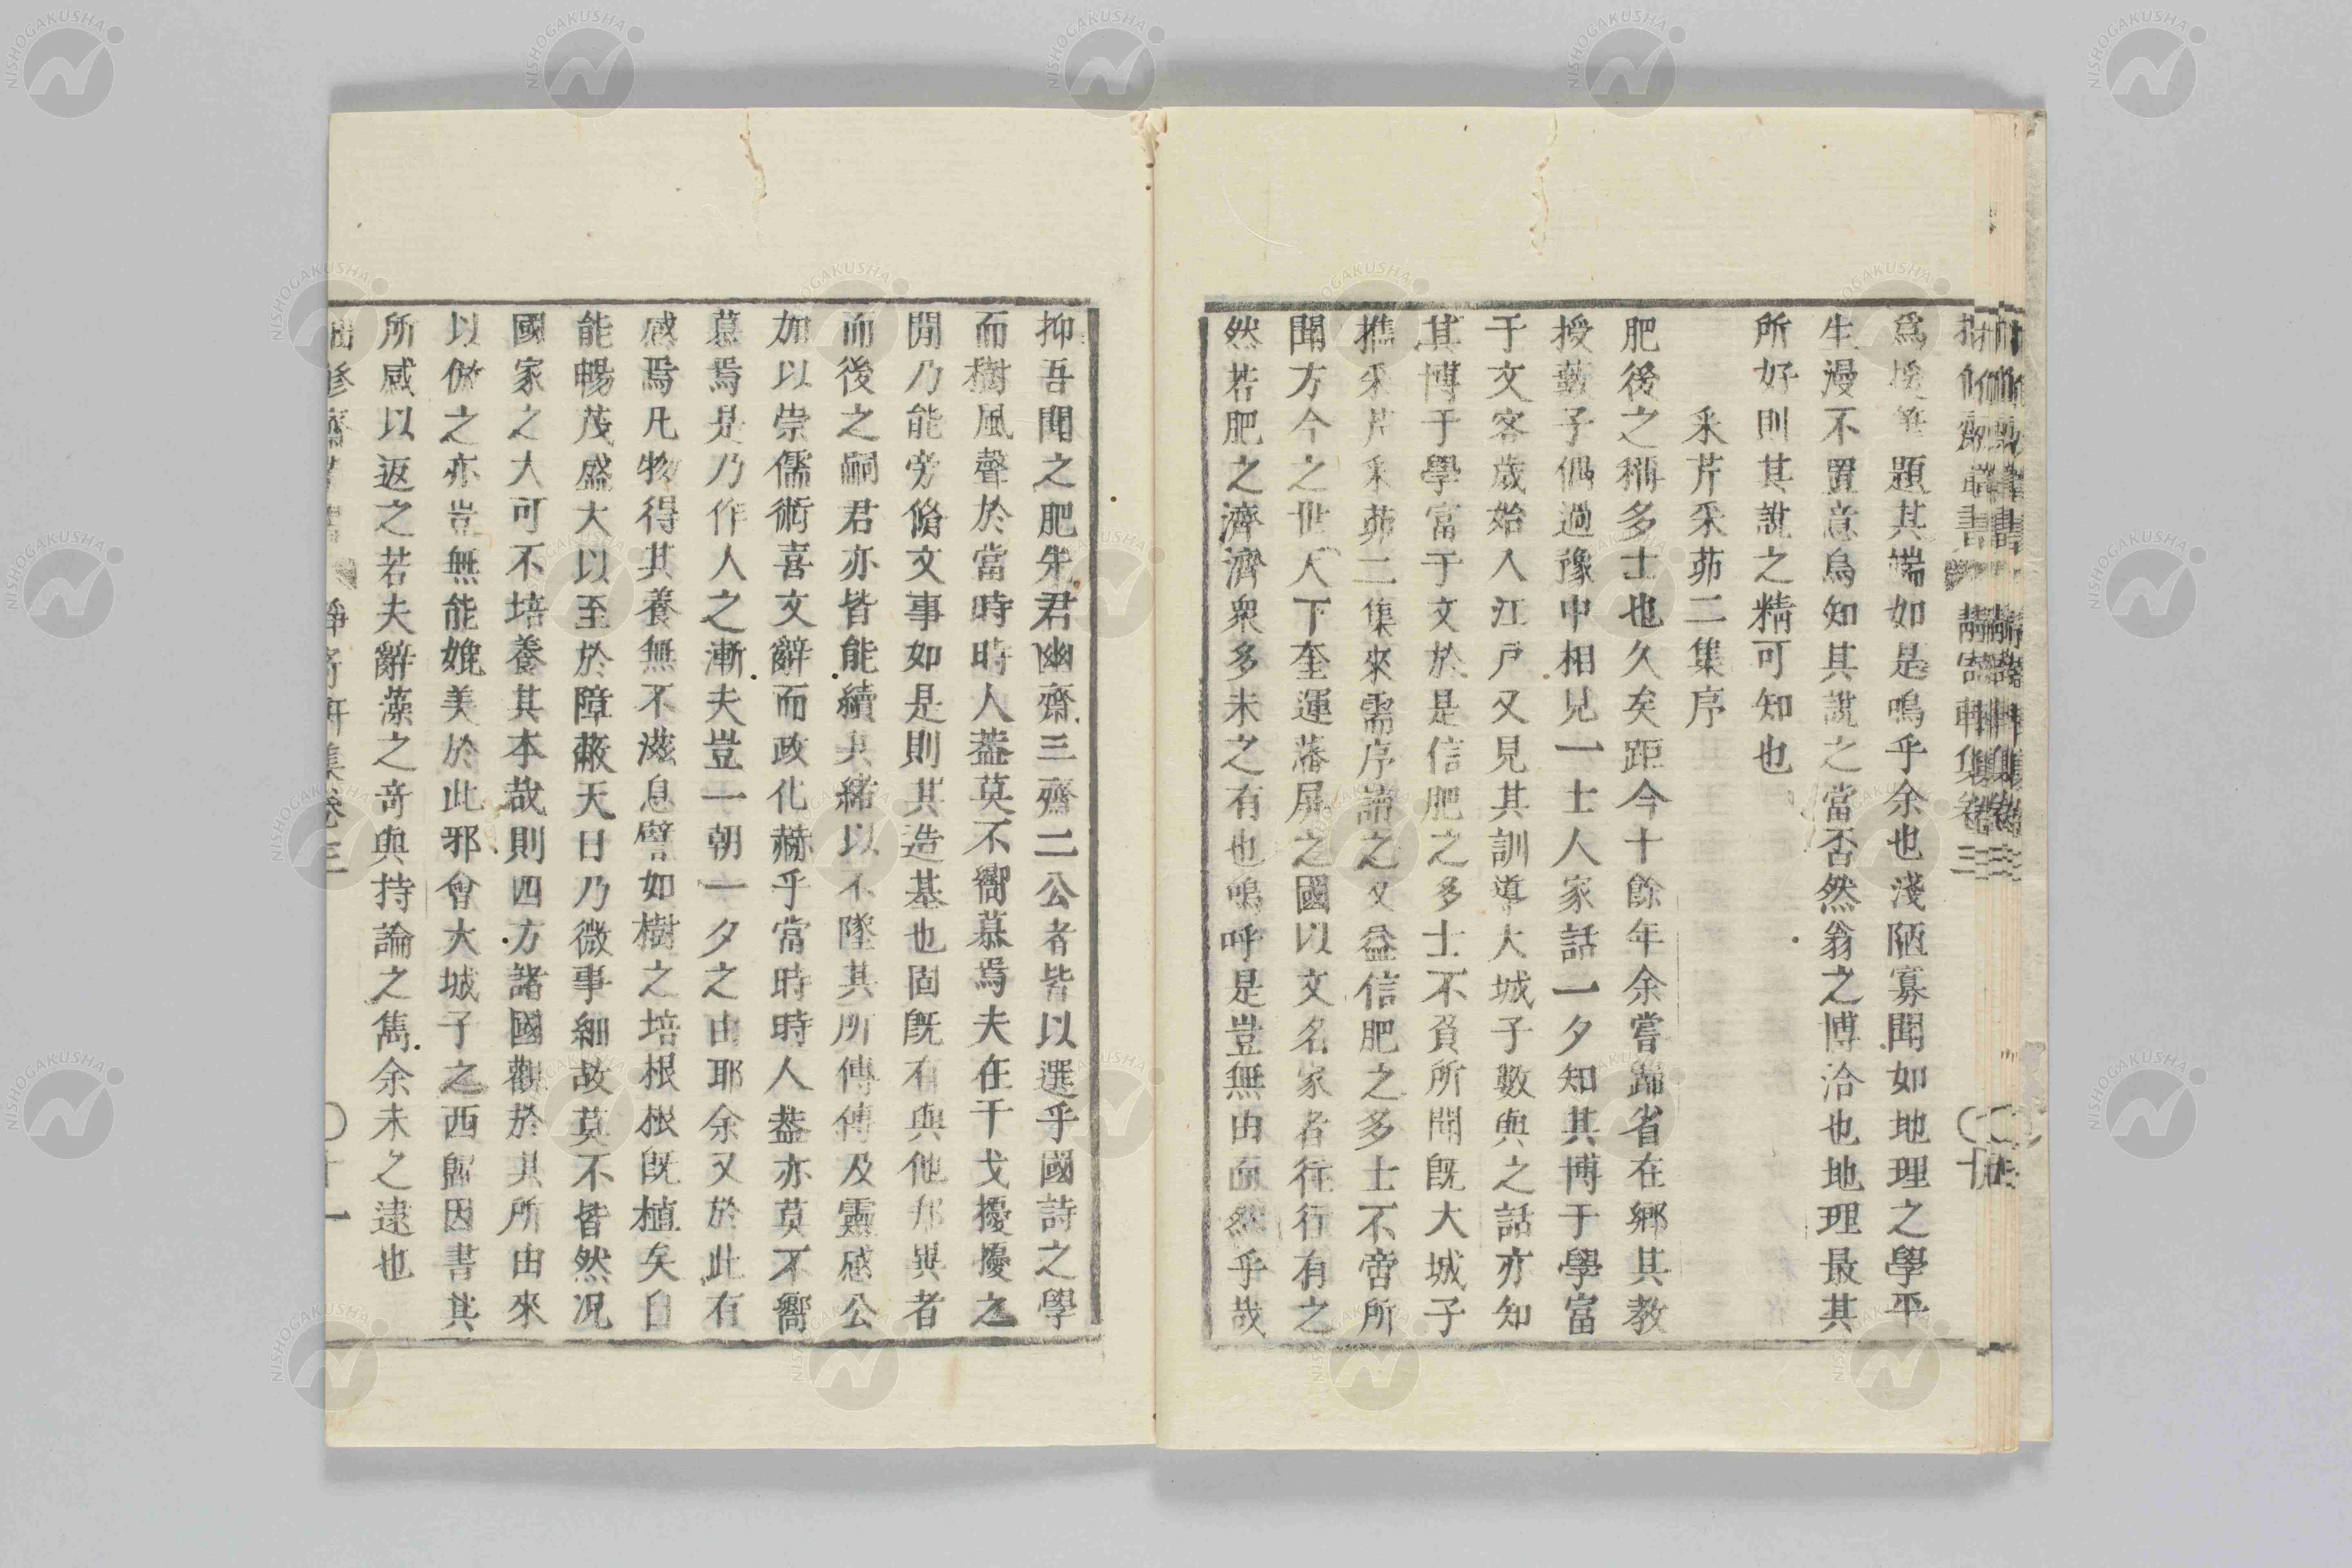 爲埃筆題其端如是鳴乎余也淺陋寡聞如地理之學平
生漫不置意烏知其說之當否然翁之博洽也地理最其
所好則其說之精可知也
采芹采茆二集序
肥後之稱多士也久矣距今十餘年余嘗歸省在鄉其教
授藪子偶過豫中相見一士人家話一夕知其博于學富
于文客歲始入江戶又見其訓導大城子數與之話亦知
其博于學富于文於是信肥之多士不負所聞旣大城子
攜采芹采茆二集來需序讀之又益信肥之多士不啻所
聞方今之世天下奎運藩屏之國以文名家者往往有之
然若肥之濟濟衆多未之有也嗚呼是豈無由而然乎哉
抑吾聞之肥先君幽齋三齋二公者皆以選乎國詩之學
而樹風聲於當時時人蓋莫不嚮慕焉夫在干戈擾擾之
閒乃能旁脩文事如是則其造基也固旣有與他邦異者
而後之嗣君亦皆能續其緒以不墜其所傳傳及靈感公
加以崇儒術喜文辭而政化赫乎當時時人蓋亦莫不嚮
慕焉是乃作人之漸夫豈一朝一夕之由耶余又於此有
感焉凡物得其養無不滋息譬如樹之培根根旣植矣自
能暢茂盛大以至於障蔽天日乃微事細故莫不皆然况
國家之大可不培養其本哉則四方諸國觀於其所由來
以倣之亦豈無能娩美於此邪會大城子之西歸因書其
所感以返之若夫辭藻之奇與持論之雋余未之逮也